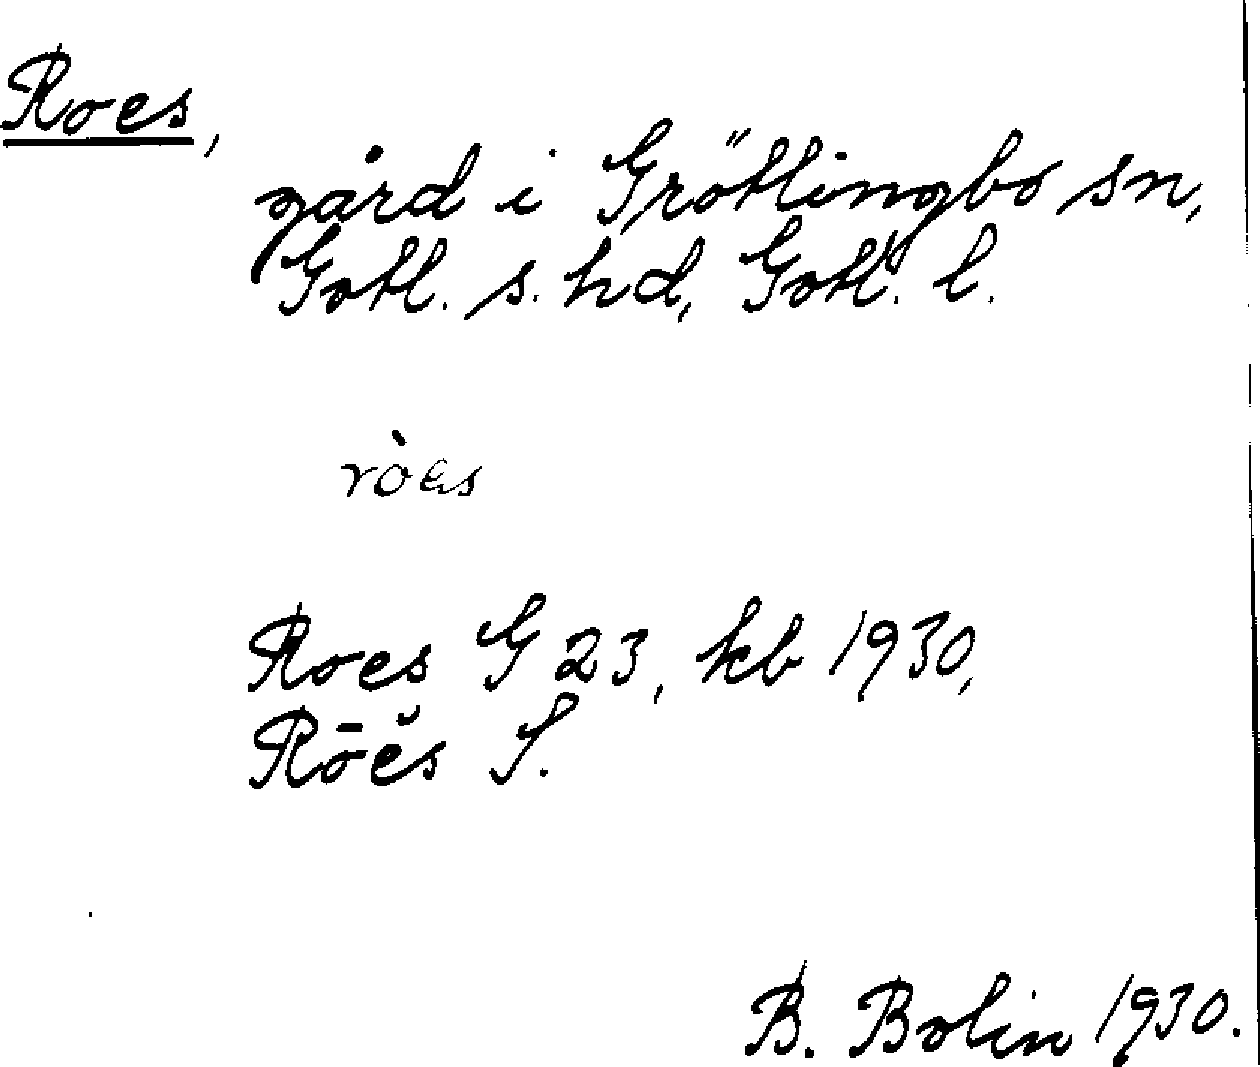 Roes,
gård i Grötlingbo sn,
Gotl. s. hd, Gotl. l.
ròes
Roes G 23, kb 1930,
Rōĕs S.
B. Bolin 1930.